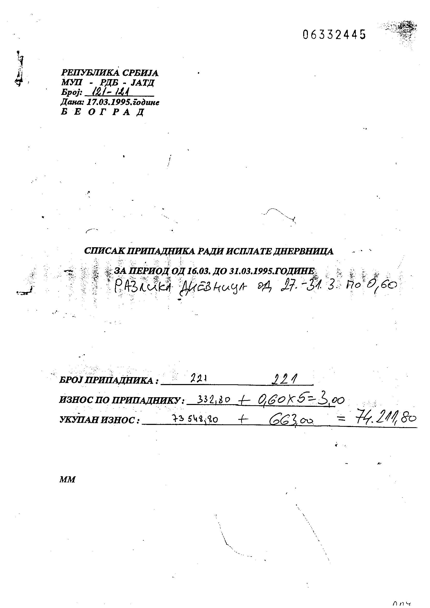 06332445
РЕПУБЛИКА СРБИЈА
МУП - РДБ - ЈАТД
Број: 121-121
Дана: 17.03.1995.године
Б Е О Г Р А Д
СПИСАК ПРИПАДНИКА РАДИ ИСПЛАТЕ ДНЕРВНИЦА
ЗА ПЕРИОД ОД 16.03. ДО 31.03.1995.ГОДИНЕ
РАЗЛИКА ДНЕВНИЦА ОД 27.-31.3. ПО 0,60
БРОЈ ПРИПАДНИКА : 221 221
ИЗНОС ПО ПРИПАДНИКУ: 332,80 + 0,60x5=3,00
УКУПАН ИЗНОС : 73 548,80 + 663,00 = 74.211,80
ММ